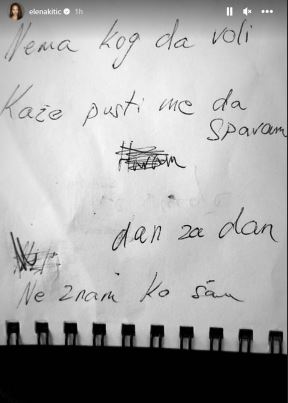 elenakitic 1h
Nema kog da voli
Kaže pusti me da
spavam
dan za dan
Ne znam ko sam